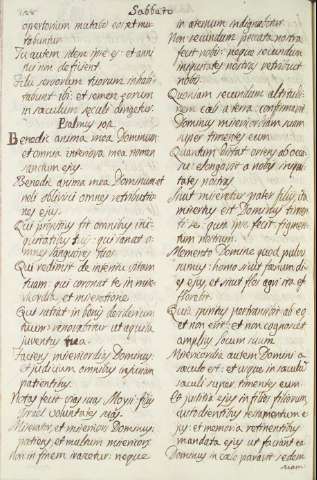 Sabbato
opertorium mutabis eos et mu
tabuntur
Tu autem idem ipse es: et anni
tui non deficient
Filii servorum tuorum inhabi
tabunt ibi: et semen eorum
in saeculum saeculi dirigetur.
Psalmus 102
Benedic anima mea Dominum
et omnia intra me a nomen
sanctum ejus.
Benedic anima mea Dominum et
noli oblivisci omnes retributio
nes ejus.
Qui propitius fit omnibus iniq
uitatibus tuis: qui sanat o
mnes languores tuos
Qui redimit de interitu vitam
tuam: qui coronat te in mise
ricordia et miserationes
Qui satiat in bonis desiderium
tuum renovabitur ut aquila
juventus tua.
Faciens misericordias Dominus
et judicium omnibus injuriam
patientibus
Notas fecit vias suas Moysi filiis
Israel voluntates suas.
Miserator et misericors Dominus
patiens et multum misericors
Non in finem irascetur neque
in aternum indignabitur
Non secundum peccata nostra
fecit nobis: neque secundum
iniquitates nostras retribuit
nobis
Quoniam secundum altitudi
nem caeli a terra confirmavit
Dominus misericordiam suam
super timentes eum
Quantum distat ortus ab occa
su: elongavit a nobis iniqui
tates nostras
Sicut miseretur pater filiis ita
misertus est Dominus timen
ti se quia ipse fecit figmen
tum nostrum.
Memento Domine quod pulvis
sumus: homo sicut faenum di
es ejus, et sicut flos agri ita ef
florebit
Quia spiritus pertransibit ab eo
et non erit: et non cognoscet
amplius locum suum
Misericordia autem Domini a
saeculo est: et usque in saeculu
saeculi super timentes eum
Et justitia ejus in filios filiorum
custodientibus testamentum e
jus: et memoria retinentibus
mandata ejus ut faciant ea
Dominus in caelo paravit sedem
suam